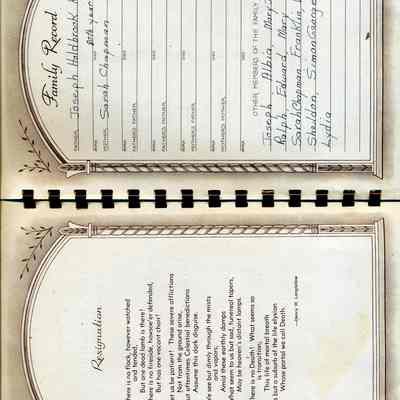 Resignation
here is no flock, however watched
and tended,
But one dead lamb is there!
here is no fireside, howsoe'er defended,
But has one vacant chair!
et us be patient! These severe afflictions
Not from the ground arise,
ut oftentimes Celestial benedictions
Assume this dark disguise.
We see but dimly through the mists
and vapors;
Amid these earthly damps
What seem to us but sad, funereal tapers,
May be heaven's distant lamps.
here is no Death! What seems so
is transition;
This life of mortal breath
s but a suburb of the life elysian
Whose portal we call Death.
—Henry W. Longfellow
Family Record
FATHER Joseph Holdbrook
BORN DIED
MOTHER Sarah Chapman
BORN DIED
FATHER'S FATHER
BORN DIED
BORN DIED
MOTHER'S FATHER
BORN DIED
BORN DIED
OTHER MEMBERS OF THE FAMILY
Joseph, Albia, Mary
Ralph, Edward, Mary
Sarah Chapman, Franklin,
Sheldon, Simon George
Lydia